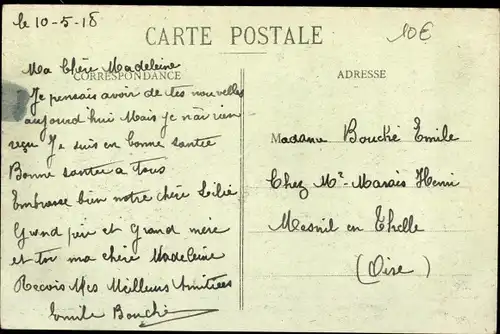 le 10-5-18
10€
CARTE POSTALE
Ma Chère Madeleine
CORRESPONDANCE
ADRESSE
Je pensais avoir de tes nouvelles
aujourd'hui Mais je n'ai rien
reçu Je suis en bonne santée
Bonne santer a tous
Embrasse bien notre chère Lilie
Grand père et Grand mère
et toi ma chère Madeleine
Recois Mes Meilleurs Amitiées
Emile Bouché
Madame Bouché Emile
Chez Mr Marais Henri
Mesnil en Thelle
(Oise)